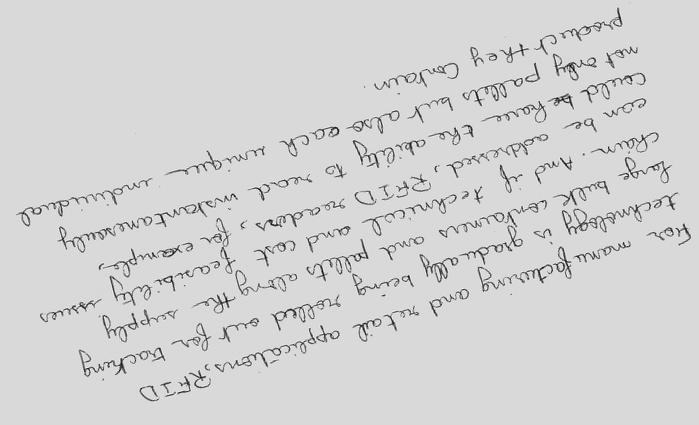 For manufacturing and retail applications, RFID
technology is gradually being rolled out for tracking
large bulk containers and pallets along the supply
chain. And if technical and cost feasibility issues
can be addressed, RFID readers, for example,
could have the ability to read instantaneously
not only pallets but also each unique individual
product they contain.